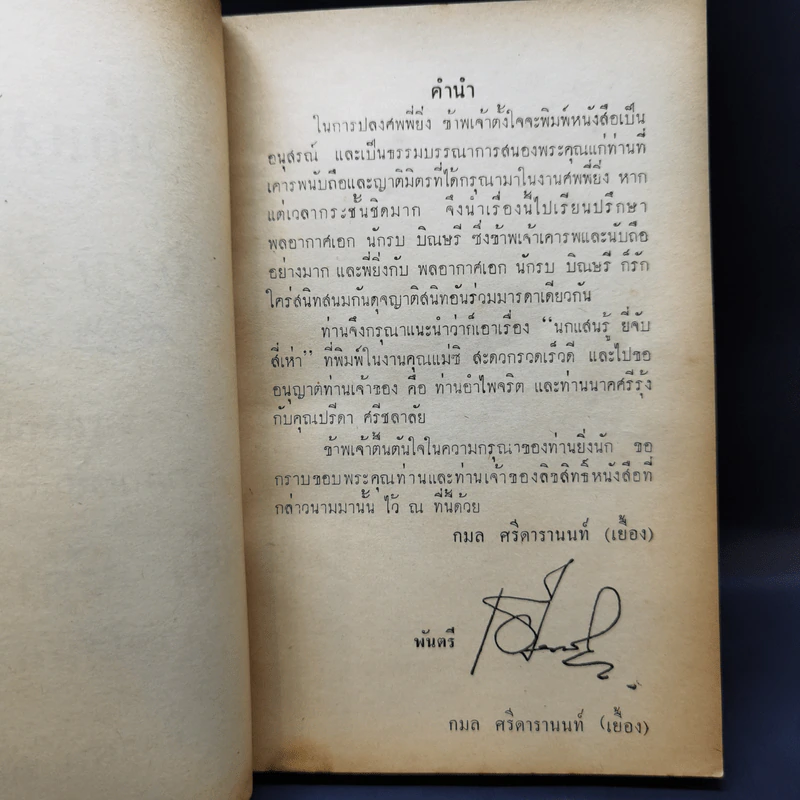 คำนำ
ในการปลงศพพี่ยิ่ง ข้าพเจ้าตั้งใจจะพิมพ์หนังสือเป็น
อนุสรณ์ และเป็นธรรมบรรณาการสนองพระคุณแก่ท่านที่
เคารพนับถือและญาติมิตรที่ได้กรุณามาในงานศพพี่ยิ่ง หาก
แต่เวลากระชั้นชิดมาก จึงนำเรื่องนี้ไปเรียนปรึกษา
พลอากาศเอก นักรบ บิณษรี ซึ่งข้าพเจ้าเคารพและนับถือ
อย่างมาก และพี่ยิ่งกับ พลอากาศเอก นักรบ บิณษรี ก็รัก
ใคร่สนิทสนมกันดุจญาติสนิทอันร่วมมารดาเดียวกัน
ท่านจึงกรุณาแนะนำว่าก็เอาเรื่อง “นกแสนรู้ ยี่จับ
สี่เห่า” ที่พิมพ์ในงานคุณแม่ซิ สะดวกรวดเร็วดี และไปขอ
อนุญาตท่านเจ้าของ คือ ท่านอำไพจริต และท่านนาคศรีรุ้ง
กับคุณปรีดา ศรีชลาลัย
ข้าพเจ้าตื้นตันใจในความกรุณาของท่านยิ่งนัก ขอ
กราบขอบพระคุณท่านและท่านเจ้าของลิขสิทธิ์หนังสือที่
กล่าวนามมานั้น ไว้ ณ ที่นี้ด้วย
กมล ศรีดารานนท์ (เยื้อง)
พันตรี
กมล ศรีดารานนท์ (เยื้อง)